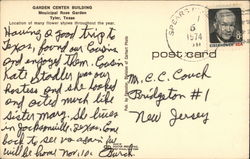 GARDEN CENTER BUILDING
Municipal Rose Garden
Tyler, Texas
Location of many flower shows throughout the year.
Having a good trip to
Texas, found our Cousins
and enjoyed them. Cousin
Kate Stadler was our
Hostess and she looked
and acted much like
sister Mary. She lives
in Jacksonville, Texas. Come
back to see us again. We
will be home Nov. 10.
6
1974
EISENHOWER USA
post card
M. C. C. Couch
Bridgeton #1
New Jersey